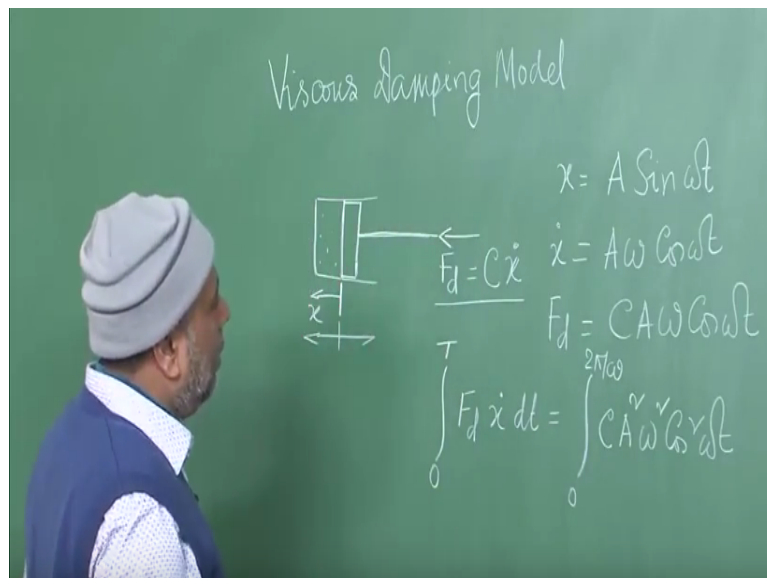 Viscous Damping Model
x = A Sin ωt
F_d = Cẋ
ẋ = Aω Cos ωt
x
F_d = CAω Cos ωt
∫₀ᵀ F_d ẋ dt = ∫₀^{2π/ω} CA²ω² Cos² ωt